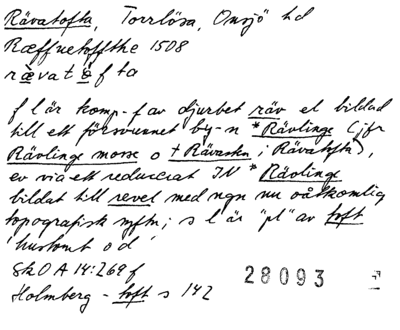 Rävatofta, Torrlösa, Onsjö hd
Ræffuetoffthe 1508
rävatåfta
fl är komp-f av djurbet räv el bildad
till ett försvunnet by-n *Rävlinge (jfr
Rävlinge mosse o †Rävasten i Rävatofta),
ev via ett reducerat IN *Rävlinge
bildat till revel med ngn nu oåtkomlig
topografisk syftn; sl är "pl" av toft
'hustomt o d'
SkOA 14:269 f
Holmberg - toft s 142
28093